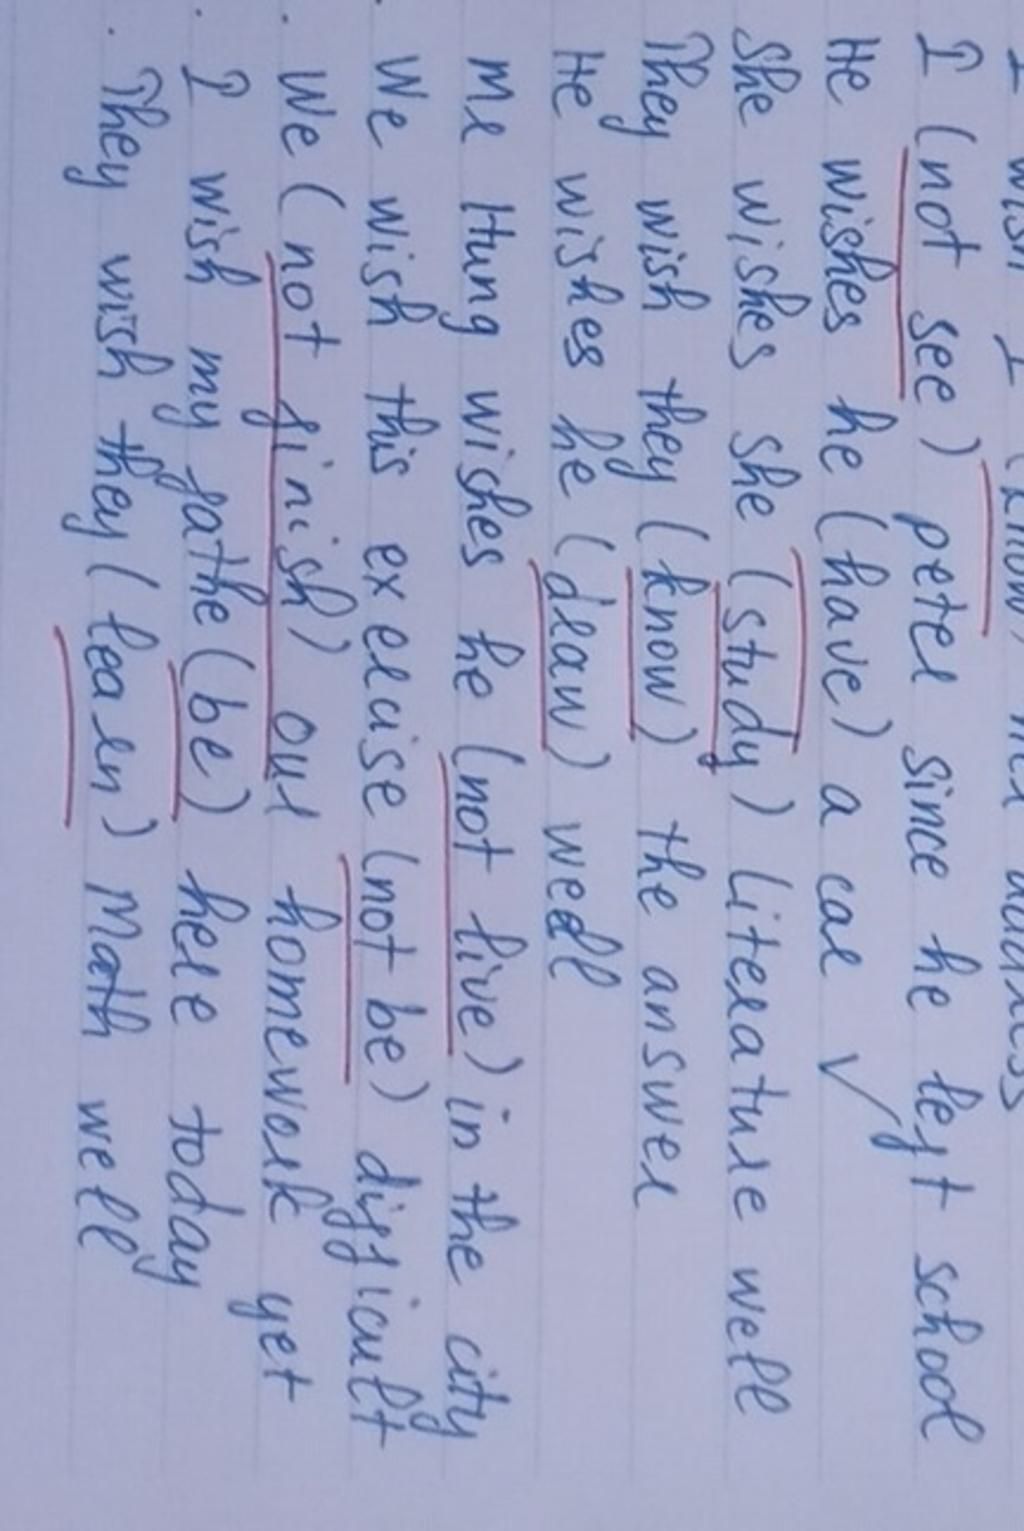 I wish I (know) her address
I (not see) peter since he left school
He wishes he (have) a car √
She wishes she (study) literature well
They wish they (know) the answer
He wishes he (draw) well
Mr Hung wishes he (not live) in the city
We wish this exercise (not be) difficult
We (not finish) our homework yet
I wish my fathe (be) here today
They wish they (learn) Math well